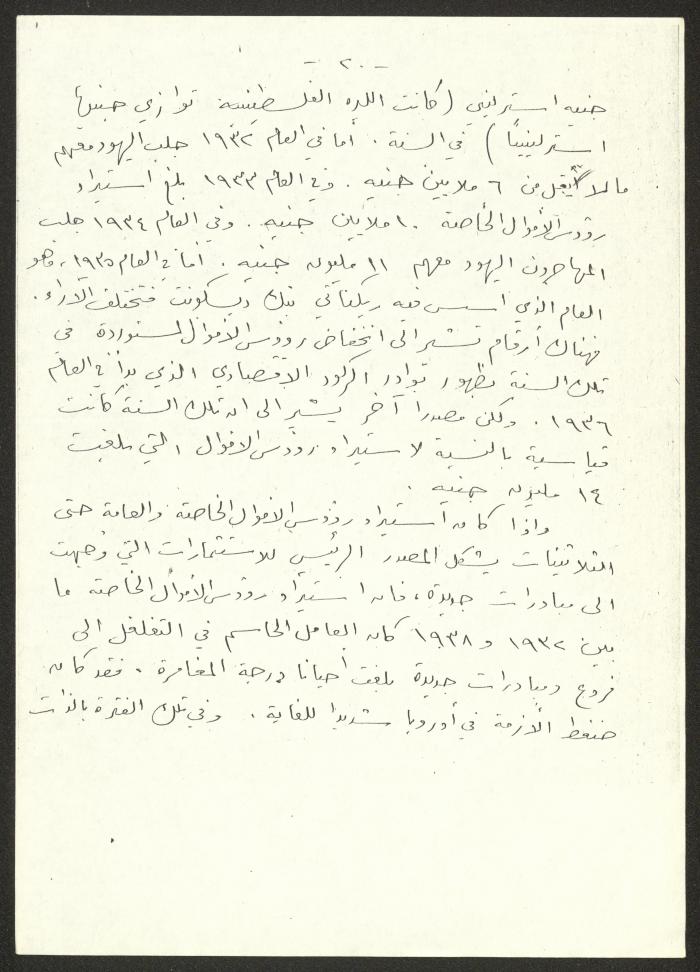 - ٢٠ -
جنيه استرليني (كانت الليره الفلسطينية توازي جنيها
استرلينيا) في السنة. أما في العام ١٩٣٢ جلب اليهود معهم
مالا يقل من ٦ ملايين جنيه. وفي العام ١٩٣٣ بلغ استيراد
رؤوس الأموال الخاصة ١٠ ملايين جنيه. وفي العام ١٩٣٤ جلب
المهاجرون اليهود معهم ١١ مليون جنيه. أما في العام ١٩٣٥، فهو
العام الذي اسس فيه ريكناتي بنك ديسكونت فتختلف الآراء.
فهناك أرقام تشير الى انخفاض رؤوس الأموال المستوردة في
تلك السنة بظهور بوادر الركود الاقتصادي الذي بدأ في العام
١٩٣٦. ولكن مصدرا آخر يشير الى ان تلك السنة كانت
قياسية بالنسبة لاستيراد رؤوس الاموال التي بلغت
١٤ مليون جنيه.
واذا كان استيراد رؤوس الاموال الخاصة والعامة حتى
الثلاثينات يشكل المصدر الرئيس للاستثمارات التي وجهت
الى مبادرات جديدة، فان استيراد رؤوس الأموال الخاصة ما
بين ١٩٣٢ و ١٩٣٨ كان العامل الحاسم في التغلغل الى
فروع ومبادرات جديدة بلغت أحيانا درجة المغامرة. فقد كان
ضغط الأزمة في أوروبا شديدا للغاية. وفي تلك الفترة بالذات